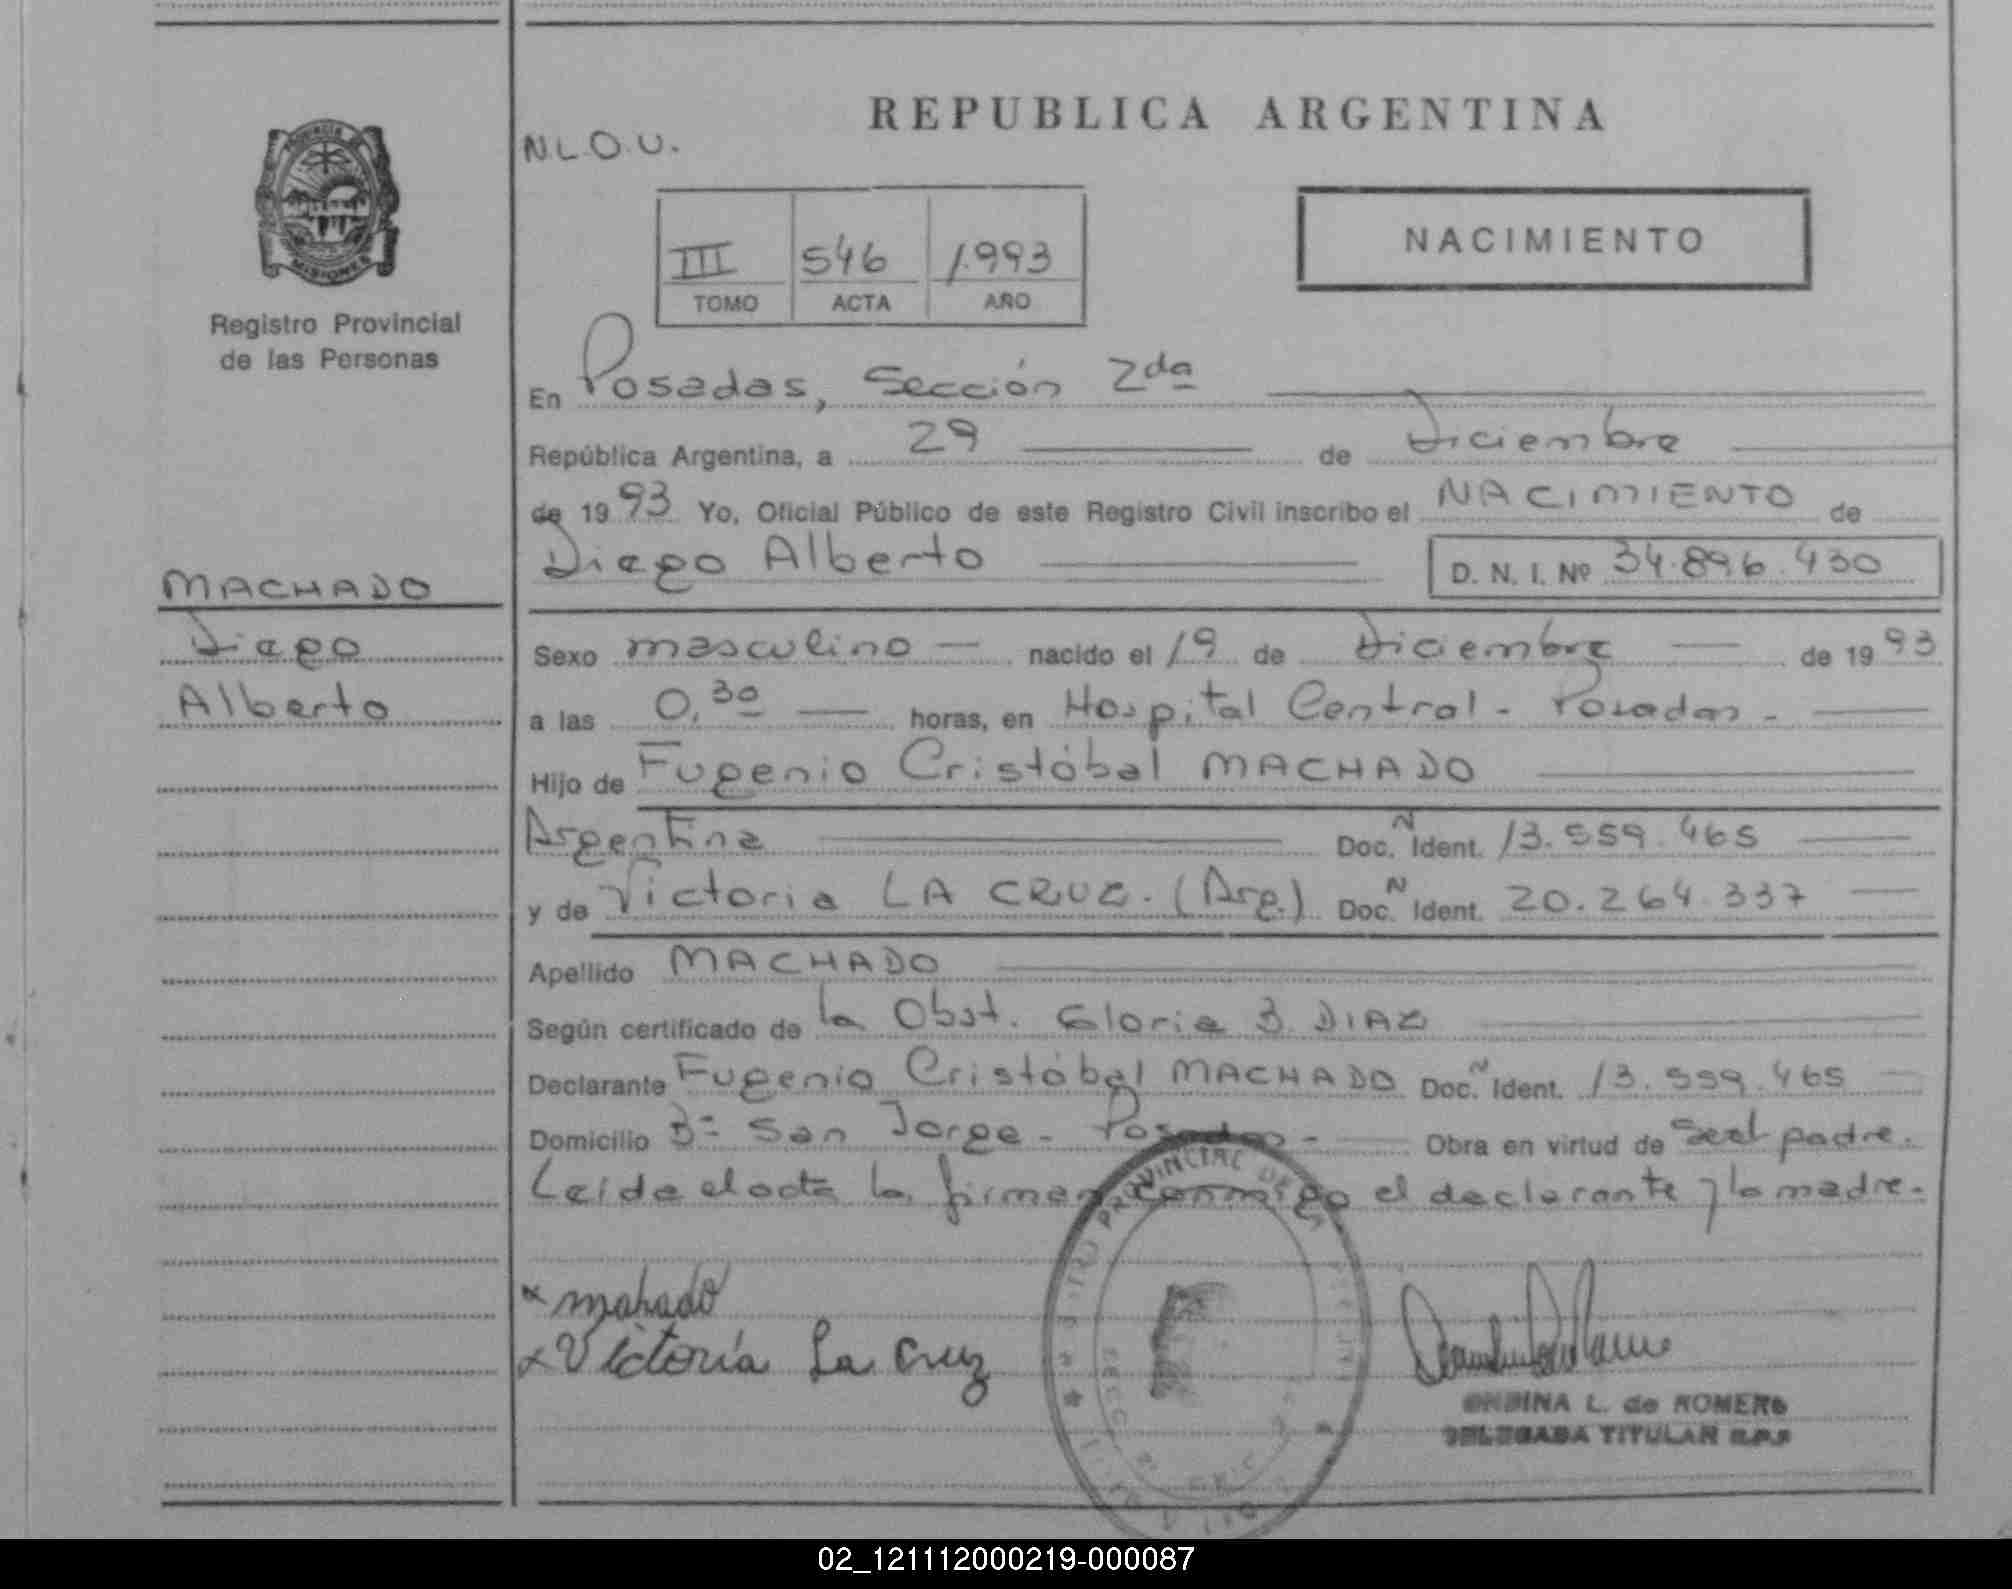 PROVINCIA DE
MISIONES
Registro Provincial
de las Personas
MACHADO
Diego
Alberto
REPUBLICA ARGENTINA
N.L.O.U.
III 546 1.993
TOMO ACTA AÑO
NACIMIENTO
En Posadas, Sección 2da
República Argentina, a 29 de Diciembre
de 1993 Yo, Oficial Público de este Registro Civil inscribo el NACIMIENTO de
Diego Alberto D. N. I. Nº 34.896.430
Sexo masculino — nacido el 19 de Diciembre — de 1993
a las 0,30 — horas, en Hospital Central - Posadas -
Hijo de Eugenio Cristóbal MACHADO
Argentina Doc. N Ident. 13.559.465
y de Victoria LA CRUZ. (Arg.) Doc. N Ident. 20.264.337
Apellido MACHADO
Según certificado de la Obst. Gloria B. DIAZ
Declarante Eugenio Cristóbal MACHADO Doc. N Ident. 13.559.465
Domicilio Bº San Jorge - Posadas - Obra en virtud de ser el padre.
Leída el acta la firman conmigo el declarante y la madre.
x mahado
x Victoria La Cruz
PROVINCIAL DE
ONDINA L. de ROMERO
DELEGADA TITULAR R.P.P
02_121112000219-000087